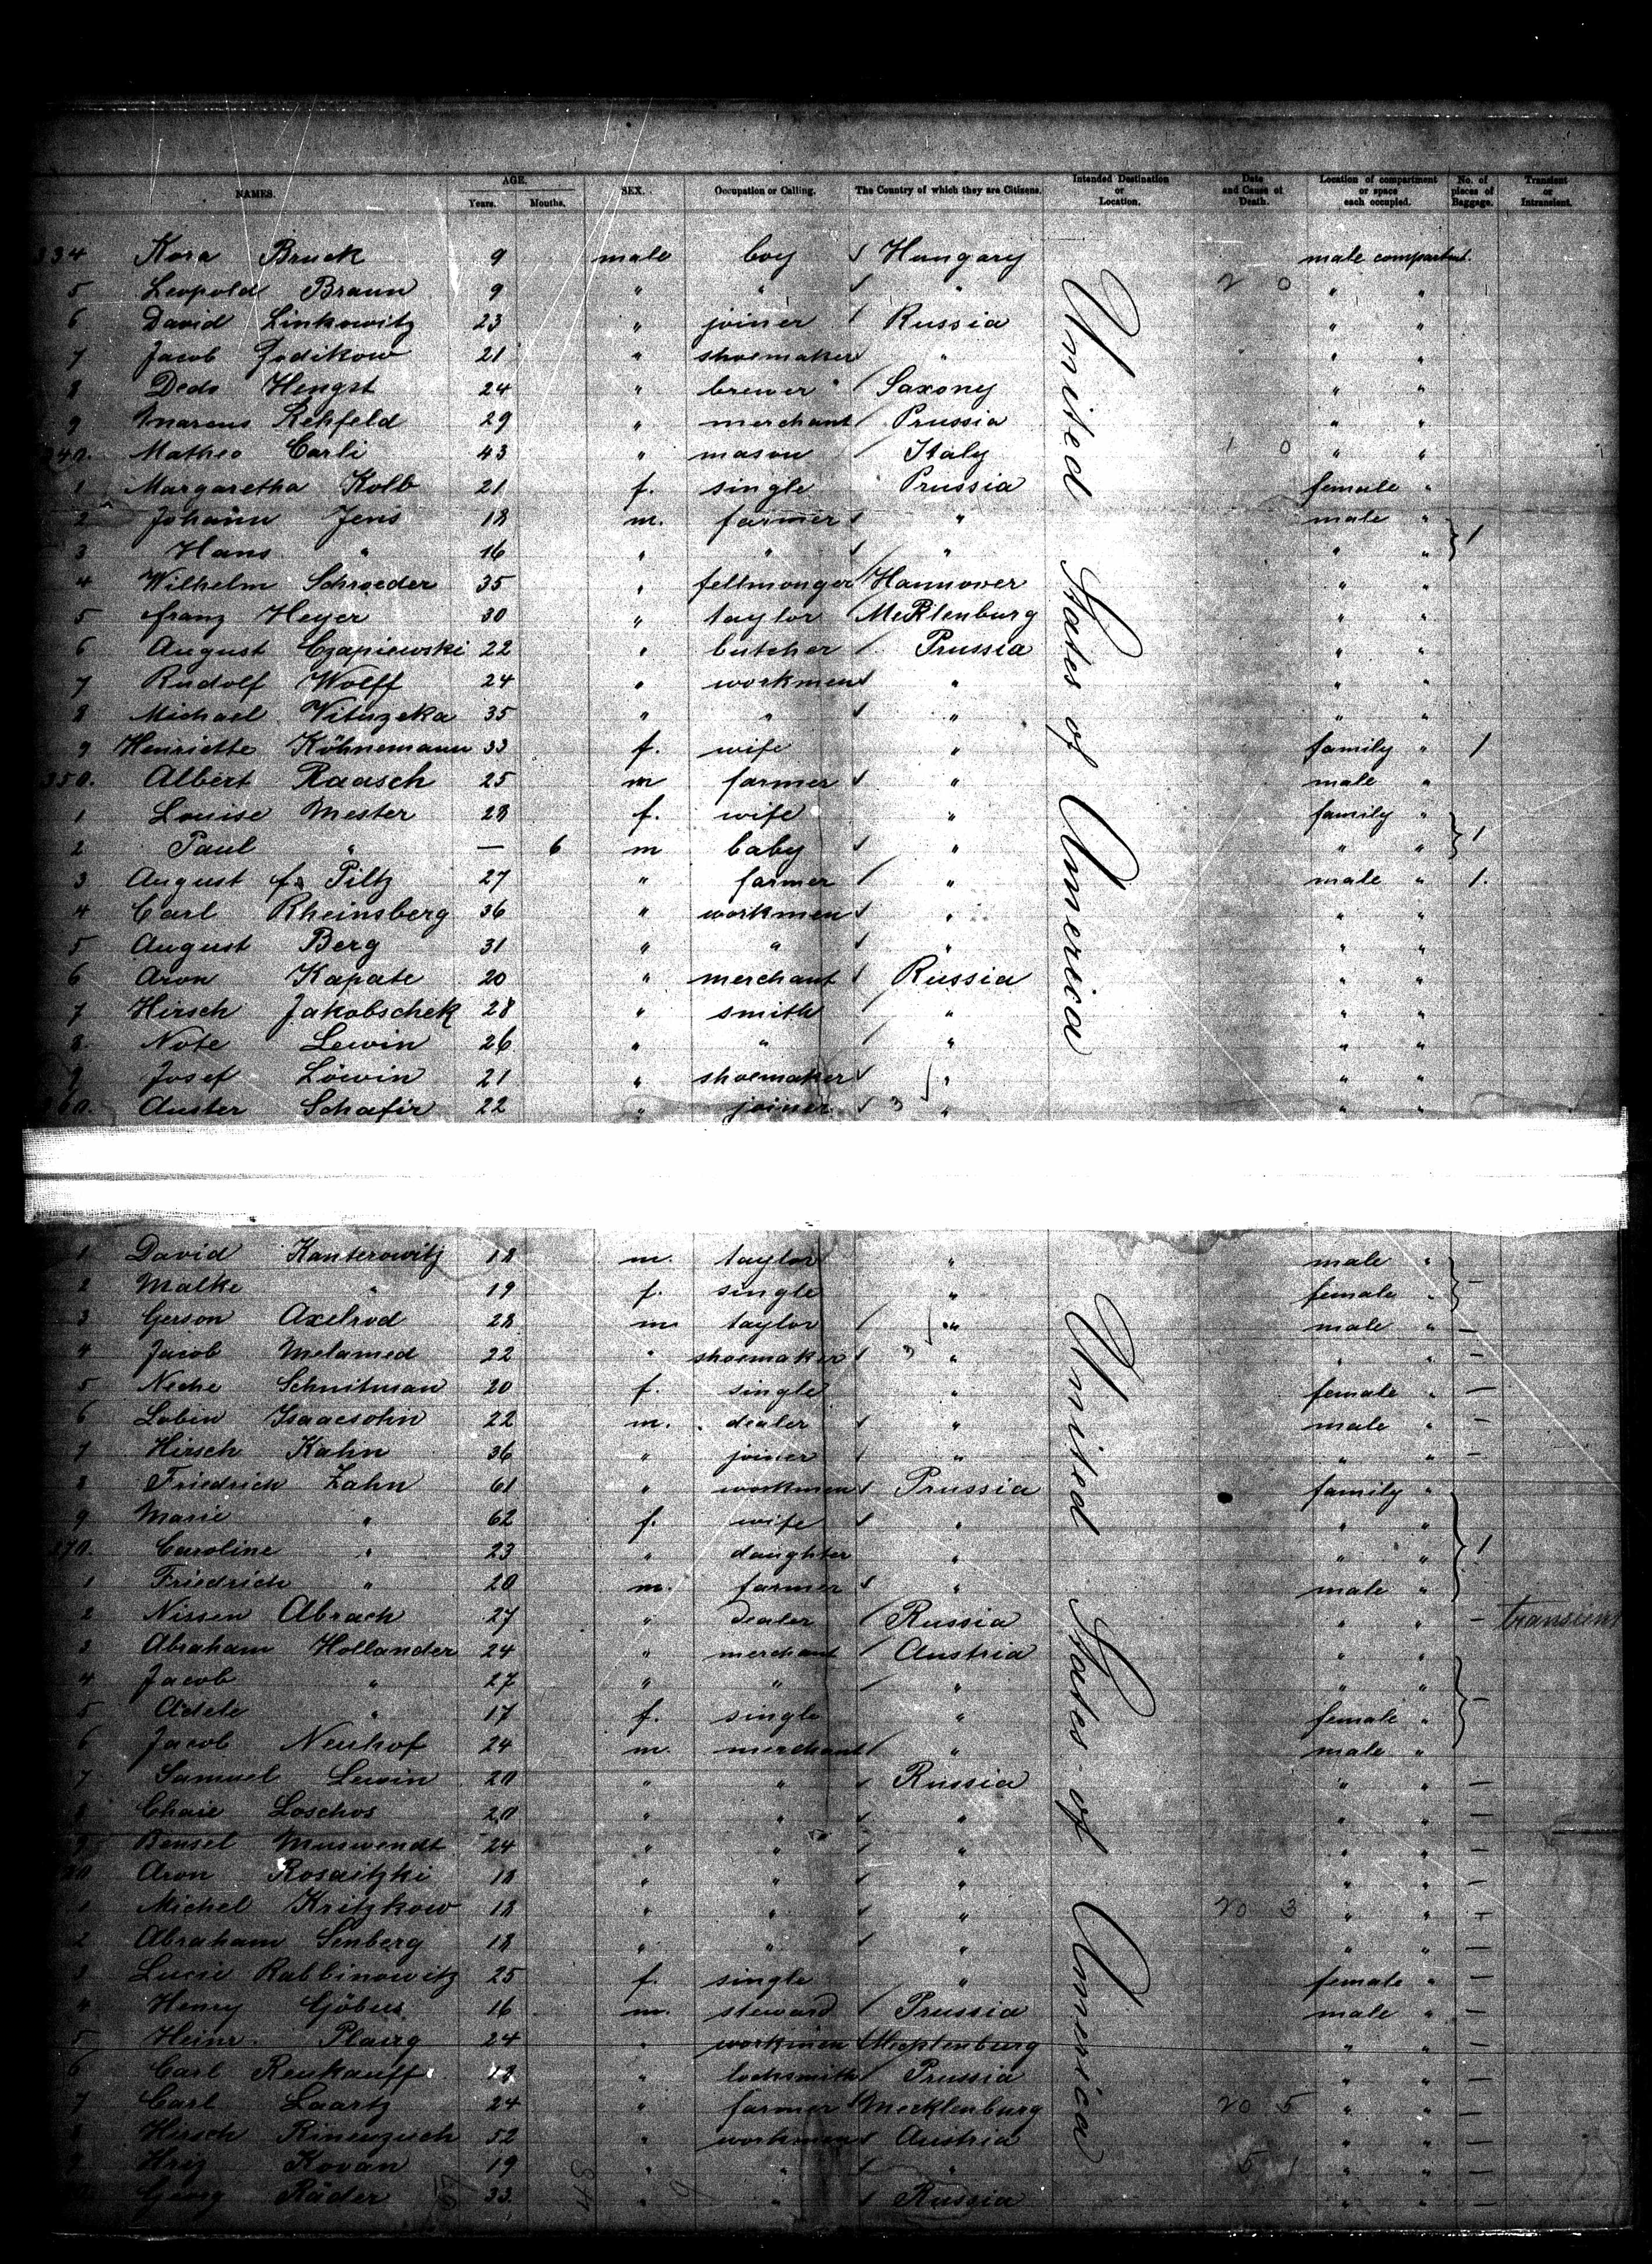 NAMES. AGE. Years. Months. SEX. Occupation or Calling. The Country of which they are Citizens. Intended Destination or Location. Date and Cause of Death. Location of compartment or space each occupied. No. of pieces of Baggage. Transient or Intransient.
334 Kora Bruck 9 male boy Hungary male compartmt.
5 Leopold Braun 9 " " " 2 0 " "
6 David Linkowitz 23 " joiner Russia " "
7 Jacob Godikow 21 " shoemaker " " "
8 Dedo Hengst 24 " brewer Saxony " "
9 Marcus Rehfeld 29 " merchant Prussia " "
340. Matheo Carli 43 " mason Italy 1 0 " "
1 Margaretha Kolb 21 f. single Prussia female "
2 Johann Jens 18 m. farmer " male " 1
3 Hans " 16 " " " " "
4 Wilhelm Schroeder 35 " fellmonger Hannover " "
5 Franz Heyer 30 " taylor Mecklenburg " "
6 August Czapiewski 22 " butcher Prussia " "
7 Rudolf Wolff 24 " workmen " " "
8 Michael Vituzeka 35 " " " " "
9 Henriette Köhnemann 33 f. wife " family " 1
350. Albert Raasch 25 m farmer " male "
1 Louise Mester 28 f. wife " family " 1
2 Paul " — 6 m baby " " "
3 August f. Piltz 27 " farmer " male " 1.
4 Carl Rheinsberg 36 " workmen " " "
5 August Berg 31 " " " " "
6 Aron Kapate 20 " merchant Russia " "
7 Hirsch Jakobschek 28 " smith " " "
8. Note Lewin 26 " " " " "
9 Josef Löwin 21 " shoemaker " " "
360. Auster Schafir 22 " joiner 3 " " "
United States of America
1 David Kanterowitz 18 m. taylor " male "
2 Malke " 19 f. single " female " —
3 Gerson Axelrod 28 m. taylor " male " —
4 Jacob Melamed 22 " shoemaker 3 " " " —
5 Neche Schnitman 20 f. single " female " —
6 Lobin Isaacsohn 22 m. dealer " male " —
7 Hirsch Kahn 36 " joiner " " " —
8 Friedrich Zahn 61 " workmen Prussia family "
9 Marie " 62 f. wife " " "
370. Caroline " 23 " daughter " " " 1
1 Friedrich " 20 m. farmer " male "
2 Nissen Abrach 27 " dealer Russia " " — transient
3 Abraham Hollander 24 " merchant Austria " "
4 Jacob " 27 " " " " "
5 Adele " 17 f. single " female " —
6 Jacob Neuhof 24 m. merchant " male "
7 Samuel Lewin 20 " " Russia " " —
8 Chaie Loschos 20 " " " " " —
9 Bensel Muswendt 24 " " " " " —
80 Aron Rosaitzki 18 " " " " " —
1 Michel Kritzkow 18 " " " 20 3 " " —
2 Abraham Senberg 18 " " " " " —
3 Lucie Rabbinowitz 25 f. single " female " —
4 Henry Göbus 16 m. steward Prussia male " —
5 Heinr. Plaerg 24 " workmen Mecklenburg " " —
6 Carl Reukauff 18 " locksmith Prussia " " —
7 Carl Laartz 24 " farmer Mecklenburg 20 5 " " —
8 Hirsch Rinenzuch 52 " workmen Austria " " —
9 Hrij Kovan 19 " " " 5 1 " " —
Georg Räder 33 " " Russia " " —
United States of America